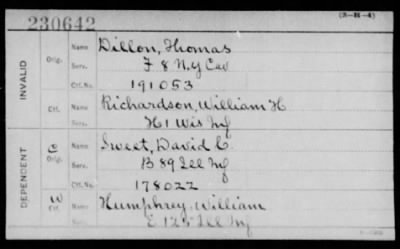 (3-H-4)
230642
INVALID
Orig. Name Dillon, Thomas
Serv. F 8 N.Y Cav
Ctf. No. 191053
Ctf. Name Richardson, William H
Serv. H 1 Wis Inf
DEPENDENT
C Orig. Name Sweet, David C.
Serv. B 89 Ill Inf
Ctf. No. 178022
W Ctf. Name Humphrey, William
E 125 Ill Inf